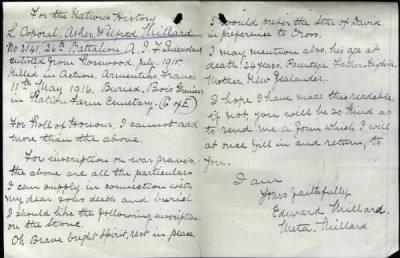 For the Nations History
L. Coporal, Asher, Wilfred Millard
No 3141, 26th Battalion A.I.F. Queensland
enlisted from Rosewood, July, 1915
Killed in Action, Armentiers, France
11th May 1916. Buried, Bois Grenier
in Ration Farm Cemetary. (C of E)
For Roll of Honour, I cannot add
more than the above.
For inscription on war graves.
the above are all the particulars
I can supply, in connection with
my dear sons death and burial
I should like the following inscription.
on the Stone.
Oh Brave bright Spirit, rest in peace.
I would prefer the Star of David
in preference to Cross.
I may mention also, his age at
death. 24 years. Parentage Father. English
Mother. New Zealander.
I hope I have made this readable,
if not, you will be so kind as
to send me a form which I will
at once fill in and return, to
you.
I am
Yours faithfully
Edward Millard.
Meta. Millard